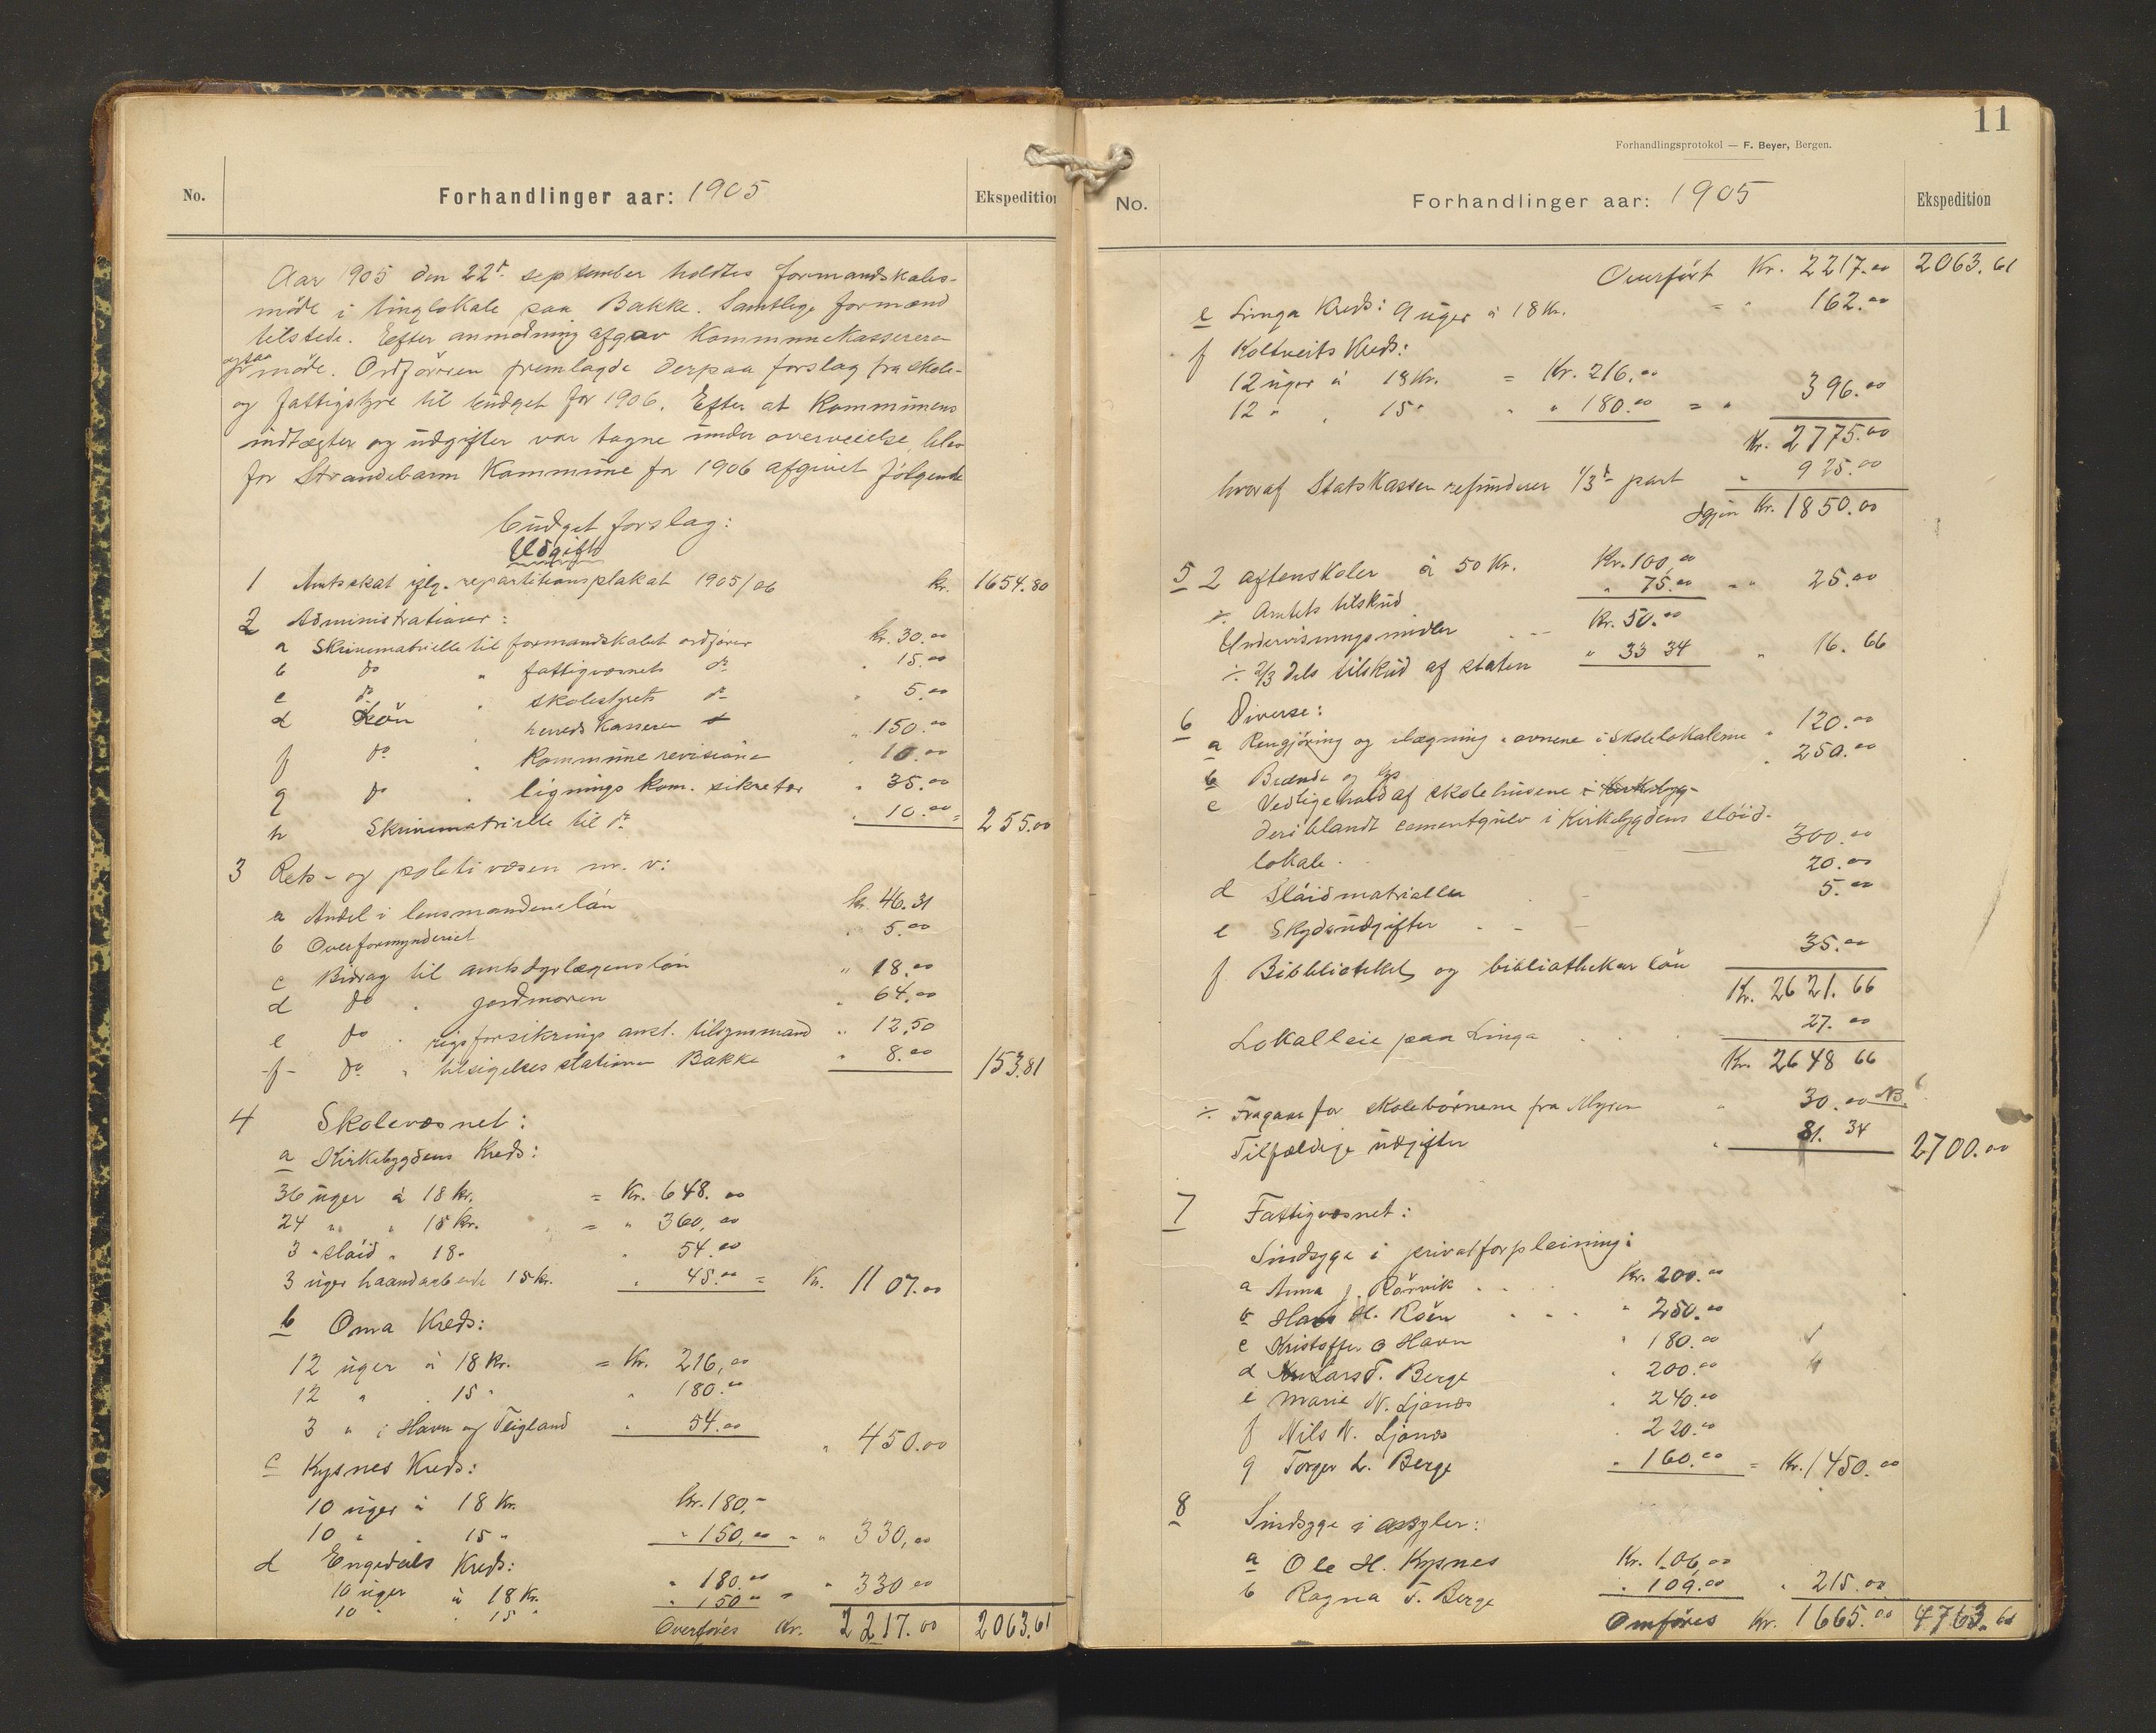 No. Forhandlinger aar: 1905 Ekspedition
Aar 905 den 22de september holdtes formandskabs-
møde i tinglokale paa Bakke. Samtlige formænd
tilstede. Efter anmodning afgav Kommunekassereren
ogsaa møde. Ordføreren fremlagde derpaa forslag fra skole-
og fattigstyre til budget for 1906. Efter at Kommunens
indtægter og udgifter var tagne under overveielse, blev
for Strandebarm Kommune for 1906 afgivet følgende
budget forslag:
Udgift
1 Amtsskat iflg. repartitionsplakat 1905/06 kr. 1654.80
2 Administrationer:
a Skrivematrielle til formandskabet ordfører kr. 30.00
b do " fattigvæsnets do " 15.00
c do " skolestyrets do " 5.00
d Løn " herreds Kasserer " 150.00
f do " Kommune revisione " 10.00
g do " lignings kom. sikretær " 35.00
h Skrivematrielle til do " 10.00 = 255.00
3 Rets- og politivæsen m. v:
a Andel i lensmandens løn kr. 46.31
b Overformynderiet " 5.00
c Bidrag til amtsdyrlægens løn " 18.00
d do " jordmoren " 64.00
e do " rigsforsikrings anst. tilsynsmand " 12.50
-f- do " tilsigelses stationen Bakke " 8.00 153.81
4 Skolevæsnet:
a Kirkebygdens Kreds:
36 uger á 18 kr. = Kr. 648.00
24 " " 15 kr. = " 360.00
3 " sløid " 18 " " 54.00
3 uger haandarbeide 15 kr. " 45.00 = Kr. 1107.00
b Oma Kreds:
12 uger á 18 kr. = Kr. 216.00
12 " " 15 " " 180.00
3 " i Havn og Teigland " 54.00 " 450.00
c Kysnes Kreds:
10 uger á 18 Kr. kr. 180.-
10 " " 15 " " 150.00 " " 330.00
d Engedals Kreds:
10 uger á 18 Kr. " 180.00
10 " " 15 " " 150.00 = " 330.00
Overføres Kr. 2217.00 2063.61
11
Forhandlingsprotokol — F. Beyer, Bergen.
No. Forhandlinger aar: 1905 Ekspedition
Overført Kr. 2217.00 2063.61
e Linga Kreds: 9 uger á 18 Kr. = " 162.00
f Koltveits Kreds:
12 uger á 18 Kr. = Kr. 216.00
12 " " 15 " " " 180.00 = " 396.00
Kr. 2775.00
hvoraf Statskassen refunderer 1/3de part " 925.00
Igjen Kr. 1850.00
5 2 aftenskoler á 50 Kr. Kr. 100.00
÷ Amtets tilskud " 75.00 = " 25.00
Undervisningsmidler Kr. 50.00
÷ 2/3 dels tilskud af staten " 33 34 " 16.66
6 Diverse:
a Rengjøring og ilægning i ovnene i Skolelokalerne " 120.00
b Brænde og lys " 250.00
c Vedligehold af skolehusene i Kirkebyg-
deriblandt cementgulv i Kirkebygdens sløid-
lokale. 300.00
d Sløidmatrialler 20.00
e Skydsudgifter 5.00
f Bibliotekets og bibliothekar løn 35.00
Kr. 2621.66
Lokalleie paa Linga 27.00
Kr. 2648 66
÷ Fragaar for skolebørnene fra Myren " 30.00 NB.
Tilfældige udgifter " 81.34 2700.00
7 Fattigvæsnet:
Sindsyge i privatforpleining:
a Anna J. Rørvik Kr. 200.00
b Hans H. Roen " 250.00
c Kristoffer O Havn " 180.00
d Lars T. Berge " 200.00
e Marie N. Ljones " 240.00
f Nils N. Ljones " 220.00
g Torger L. Berge " 160.00 = Kr. 1450.00
8 Sindsyge i asyler:
a Ole H. Kysnes Kr. 106.00
b Ragna T. Berge " 109.00 " 215.00
Omføres Kr. 1665.00 4763.61